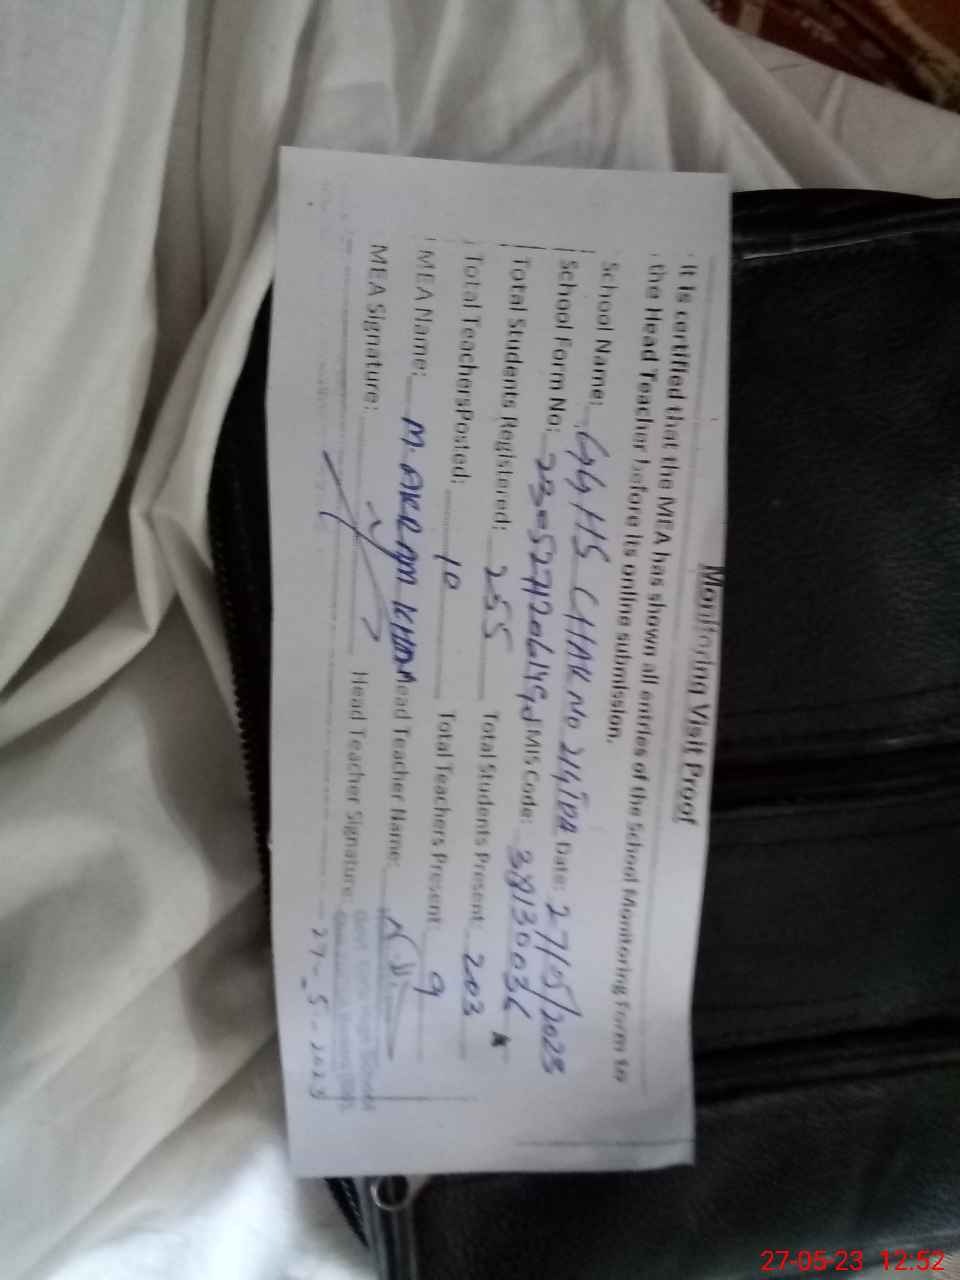 Monitoring Visit Proof
It is certified that the MEA has shown all entries of the School Monitoring Form to
the Head Teacher before its online submission.
School Name: GGHS CHAK No 214/TDA Date: 27/05/2023
School Form No: MIS Code:
Total Students Registered: 255 Total Students Present: 203
Total TeachersPosted: 10 Total Teachers Present: 9
MEA Name: M. AKRAM KHAN Head Teacher Name:
MEA Signature: Head Teacher Signature:
27-5-2023
27-05-23 12:52